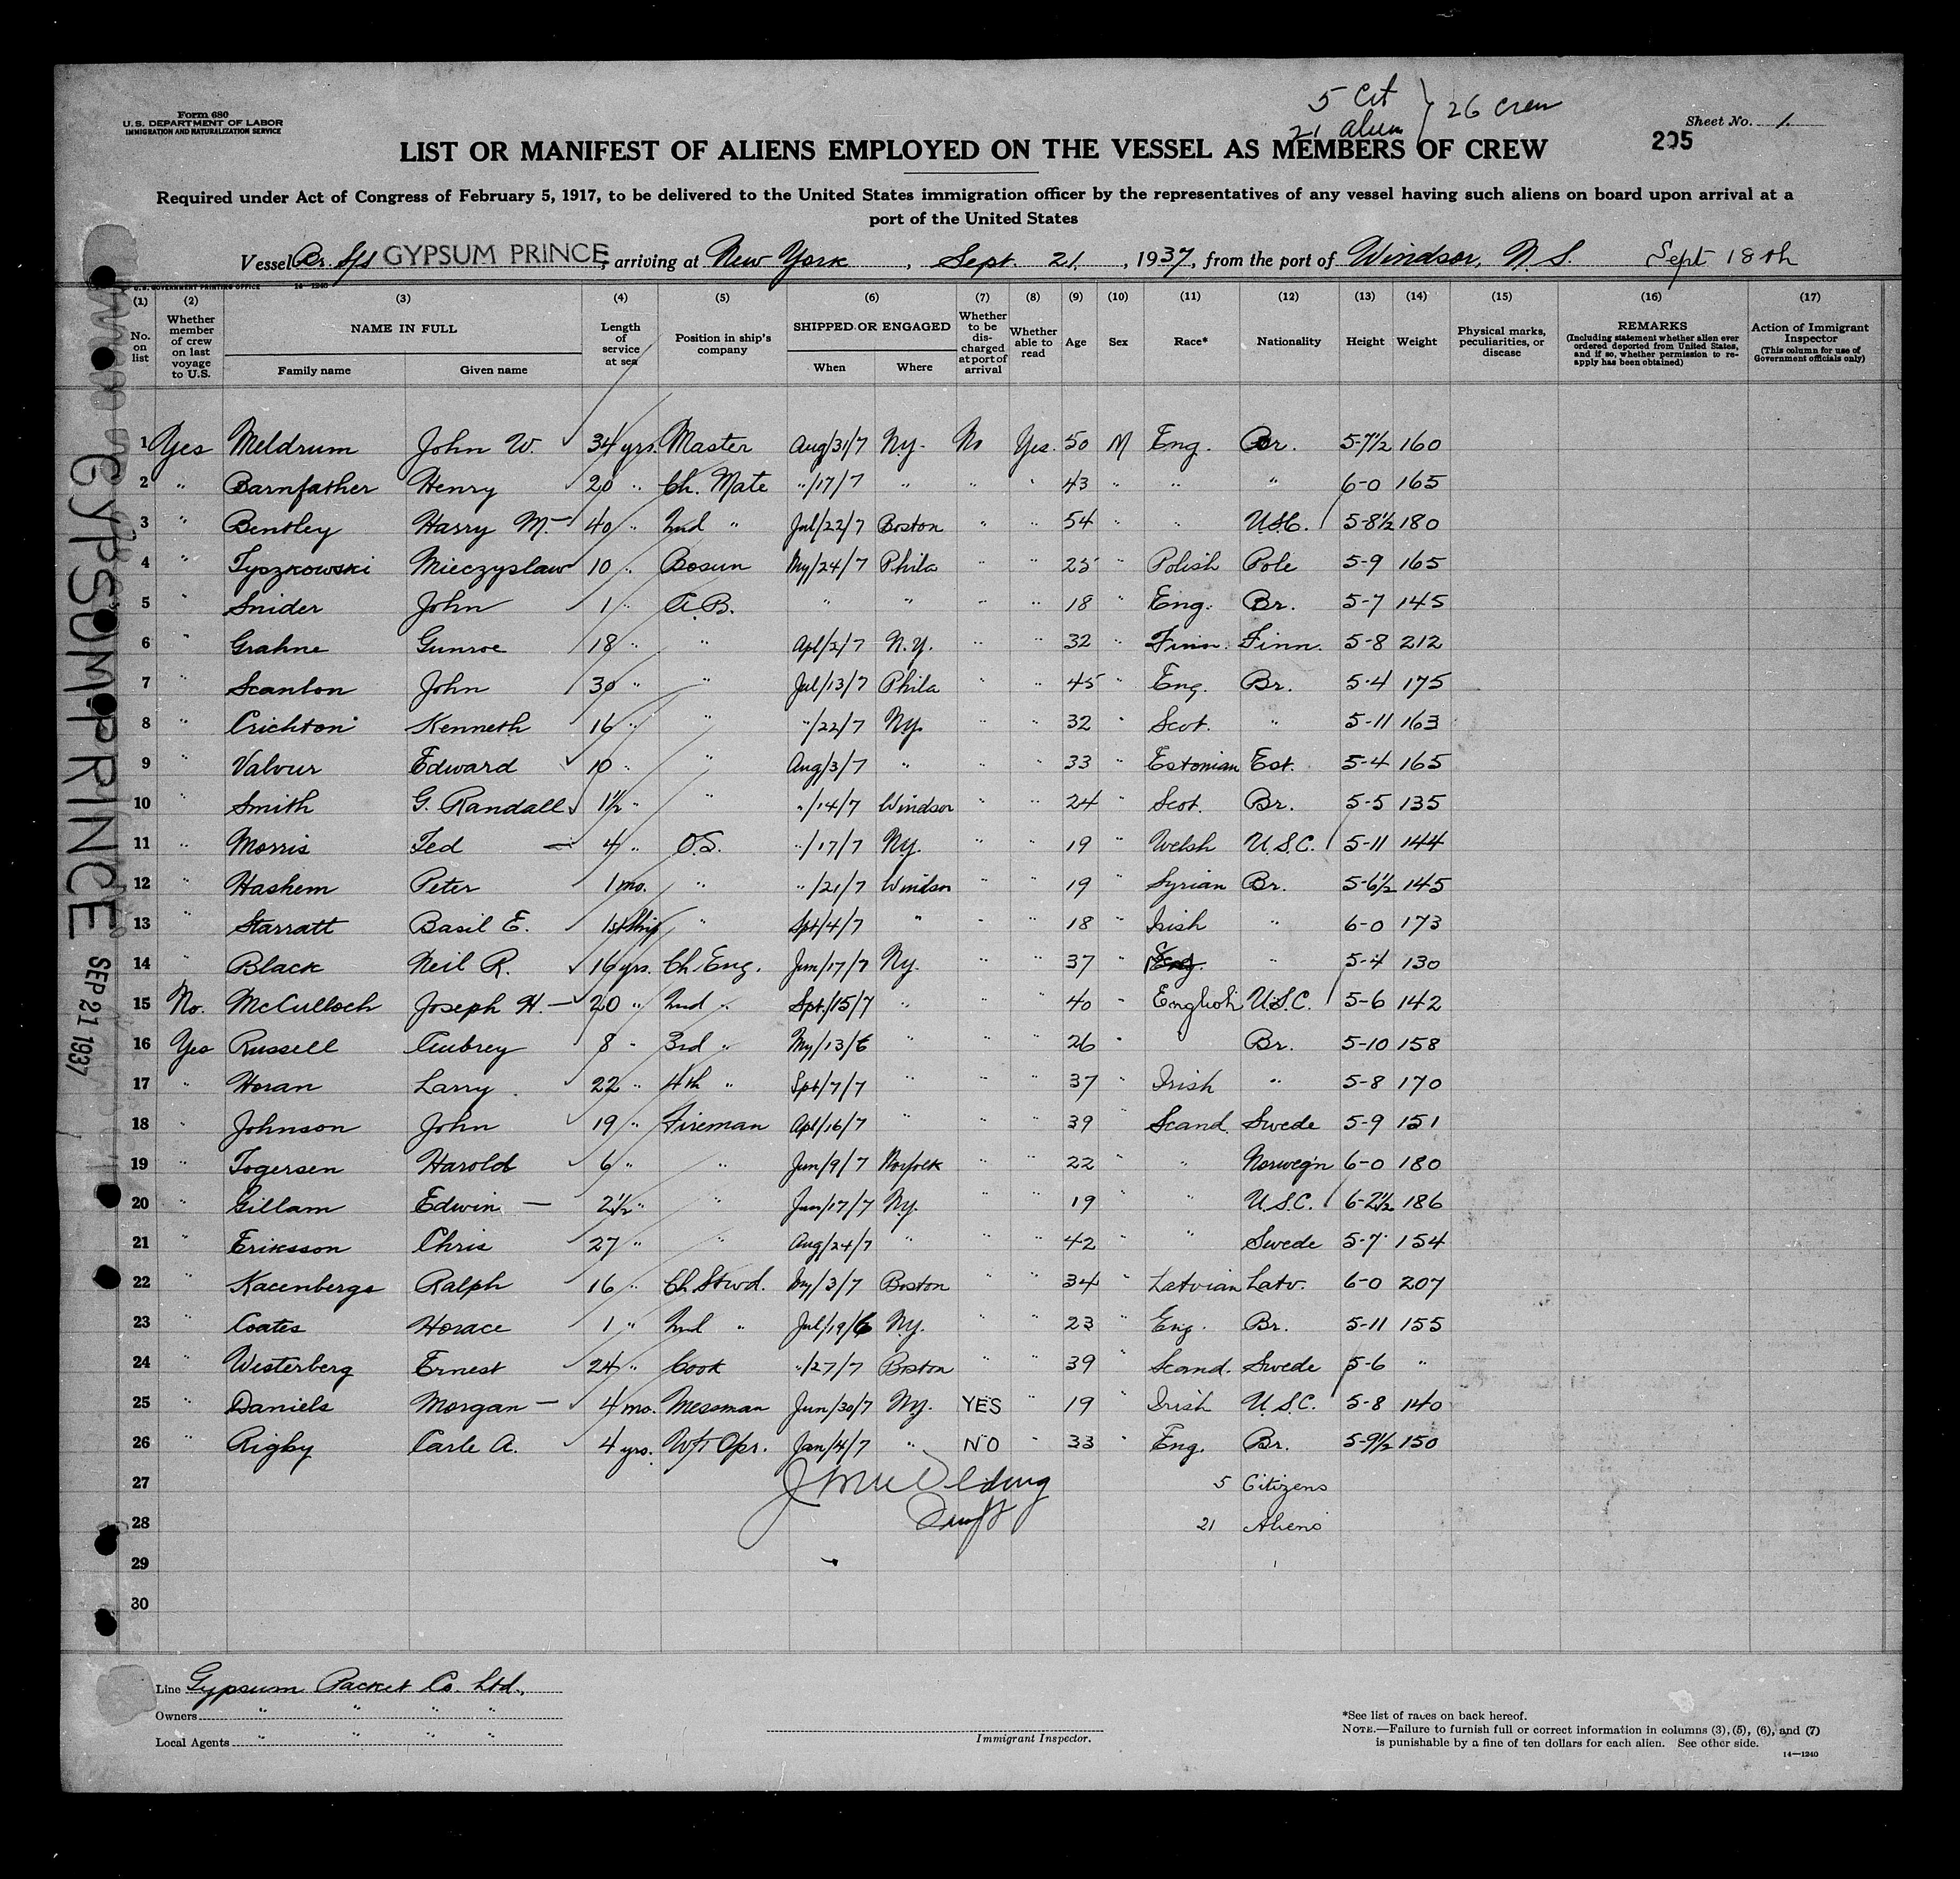 5 Cit
21 alien
26 crew
Form 680
U.S. DEPARTMENT OF LABOR
IMMIGRATION AND NATURALIZATION SERVICE
Sheet No. 1.
205
LIST OR MANIFEST OF ALIENS EMPLOYED ON THE VESSEL AS MEMBERS OF CREW
Required under Act of Congress of February 5, 1917, to be delivered to the United States immigration officer by the representatives of any vessel having such aliens on board upon arrival at a
port of the United States
Vessel Br. S/S GYPSUM PRINCE, arriving at New York, Sept. 21, 1937, from the port of Windsor, N.S. Sept 18th
U.S. GOVERNMENT PRINTING OFFICE 14—1240
(1) (2) (3) (4) (5) (6) (7) (8) (9) (10) (11) (12) (13) (14) (15) (16) (17)
No. on list
Whether member of crew on last voyage to U.S.
NAME IN FULL
Family name
Given name
Length of service at sea
Position in ship's company
SHIPPED OR ENGAGED
When
Where
Whether to be discharged at port of arrival
Whether able to read
Age
Sex
Race*
Nationality
Height
Weight
Physical marks, peculiarities, or disease
REMARKS
(Including statement whether alien ever ordered deported from United States, and if so, whether permission to reapply has been obtained)
Action of Immigrant Inspector
(This column for use of Government officials only)
1 Yes Meldrum John W. 34 yrs. Master Aug/31/7 Ny. No Yes. 50 M Eng. Br. 5-7½ 160
2 " Barnfather Henry 20 " Ch. Mate "/17/7 " " " 43 " " " 6-0 165
3 " Bentley Harry M. 40 " 2nd " Jul/22/7 Boston " " 54 " " U.S.C. 5-8½ 180
4 " Tyszkowski Mieczyslaw 10 " Bosun My/24/7 Phila " " 25 " Polish Pole 5-9 165
5 " Snider John 1 " A.B. " " " " 18 " Eng. Br. 5-7 145
6 " Grahne Gunroe 18 " " Apl/2/7 N.Y. " " 32 " Finn. Finn. 5-8 212
7 " Scanlon John 30 " " Jul/13/7 Phila " " 45 " Eng. Br. 5-4 175
8 " Crichton Kenneth 16 " " "/22/7 Ny. " " 32 " Scot. " 5-11 163
9 " Valvur Edward 10 " " Aug/3/7 " " " 33 " Estonian Est. 5-4 165
10 " Smith G. Randall 1½ " " "/14/7 Windsor " " 24 " Scot. Br. 5-5 135
11 " Morris Ted 4 " O.S. "/17/7 Ny. " " 19 " Welsh U.S.C. 5-11 144
12 " Hashem Peter 1 mo. " "/21/7 Windsor " " 19 " Syrian Br. 5-6½ 145
13 " Starratt Basil E. 1st Ship " Spt/4/7 " " " 18 " Irish " 6-0 173
14 " Black Neil R. 16 yrs. Ch. Eng. Jun/17/7 Ny. " " 37 " " 5-4 130
15 No. McCulloch Joseph H. 20 " 2nd " Spt./15/7 " " " 40 " English U.S.C. 5-6 142
16 Yes Russell Aubrey 8 " 3rd " My/13/6 " " " 26 " " Br. 5-10 158
17 " Horan Larry 22 " 4th " Spt/7/7 " " " 37 " Irish " 5-8 170
18 " Johnson John 19 " Fireman Apl/16/7 " " " 39 " Scand. Swede 5-9 151
19 " Togersen Harold 6 " " Jun/9/7 Norfolk " " 22 " " Norweg'n 6-0 180
20 " Gillam Edwin 2½ " " Jun/17/7 Ny. " " 19 " " U.S.C. 6-2½ 186
21 " Eriksson Chris 27 " " Aug/24/7 " " " 42 " " Swede 5-7 154
22 " Kacenbergs Ralph 16 " Ch. Stwd. My/3/7 Boston " " 34 " Latvian Latv. 6-0 207
23 " Coates Horace 1 " 2nd " Jul/19/6 Ny. " " 23 " Eng. Br. 5-11 155
24 " Westerberg Ernest 24 " Cook "/27/7 Boston " " 39 " Scand. Swede 5-6 "
25 " Daniels Morgan 4 mo. Messman Jun/30/7 Ny. YES " 19 " Irish U.S.C. 5-8 140
26 " Rigby Carle A. 4 yrs. W/T Opr. Jan/4/7 " NO " 33 " Eng. Br. 5-9½ 150
27 5 Citizens
28 21 Aliens
29
30
GYPSUM PRINCE
SEP 21 1937
Line Gypsum Packet Co. Ltd.,
Owners " " " "
Local Agents " " " "
Immigrant Inspector.
*See list of races on back hereof.
NOTE.—Failure to furnish full or correct information in columns (3), (5), (6), and (7)
is punishable by a fine of ten dollars for each alien. See other side.
14—1240